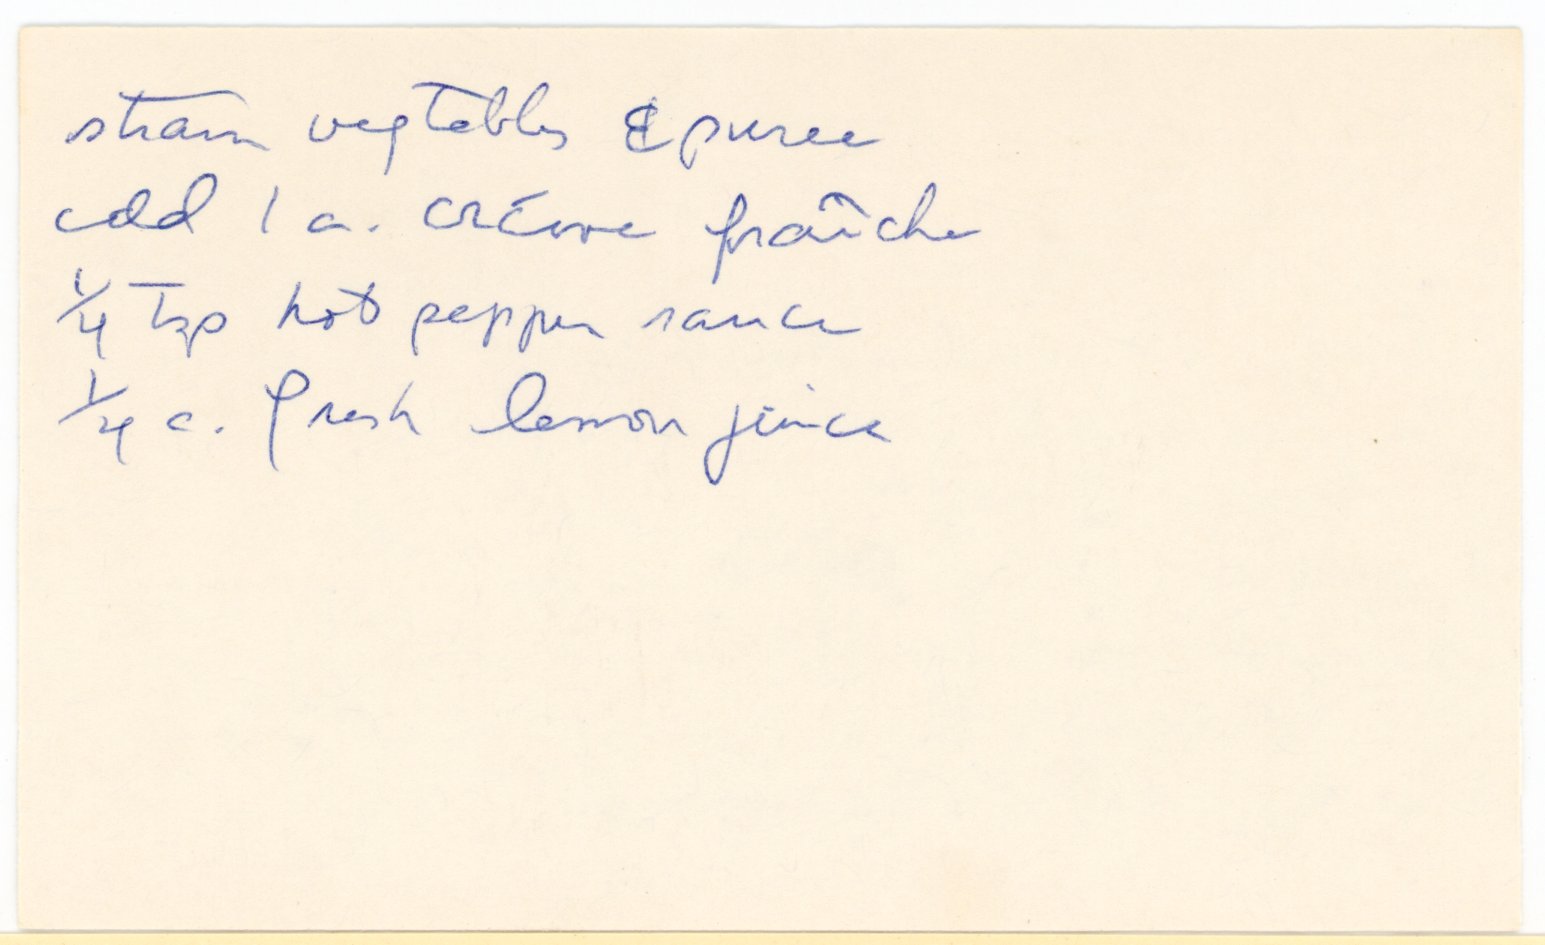 strain vegtables & puree
add 1 c. créme fraîche
1/4 tsp hot pepper sauce
1/4 c. fresh lemon juice